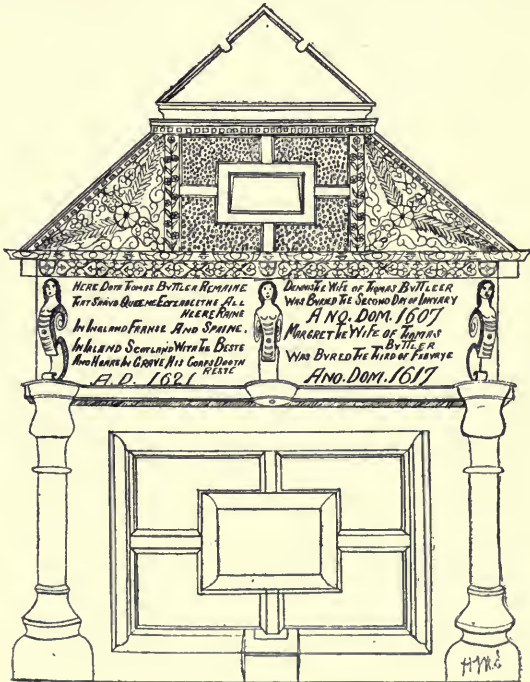 HERE DOTH TOMAS BVTTLER REMAINE
THAT SARVD QUEENE ELESABETHE ALL
HEERE RAINE
IN INGLAND FRANSE AND SPAINE.
IN IRLAND SCOTLAND WITH THE BESTE
AND HEARE IN GRAVE HIS CORPS DOOTH
RESTE
A.D. 1621
DENNIS THE WIFE OF TOMAS BVTTLEER
WAS BVRED THE SECOND DAY OF IANVARY
ANO. DOM. 1607
MARGRET THE WIFE OF THOMAS
BVTTLER
WAS BVRED THE THIRD OF
ANO. DOM. 1617